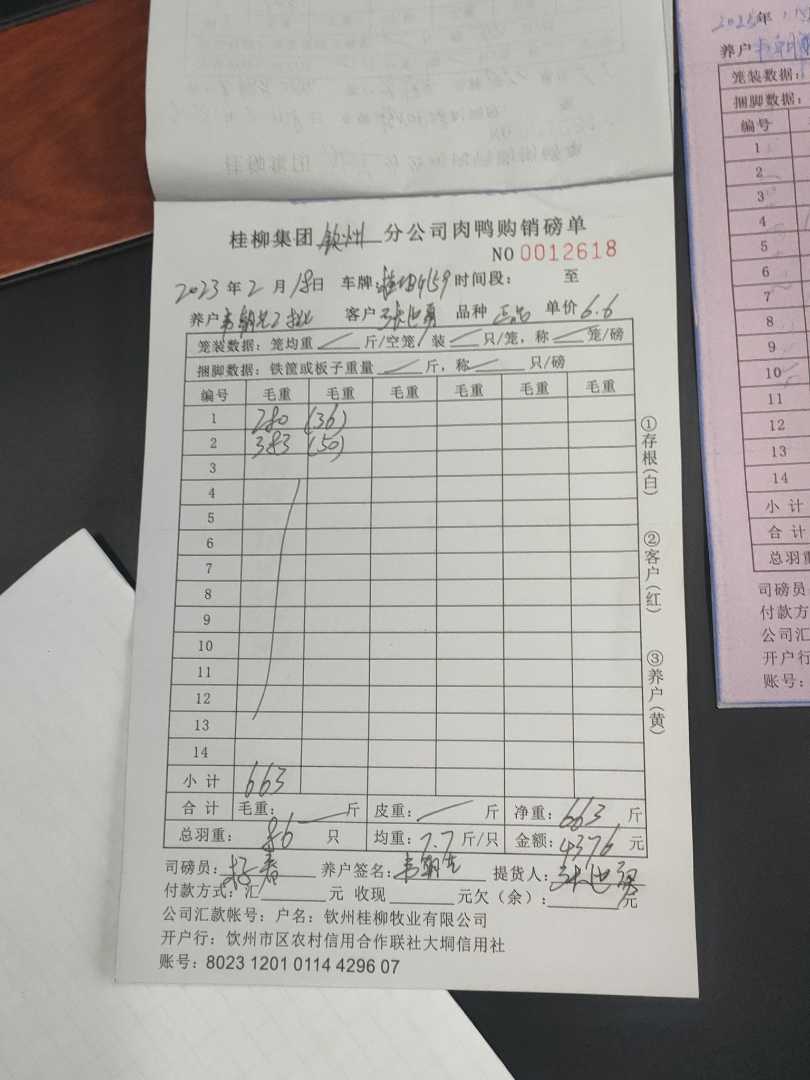 桂柳集团 钦州 分公司肉鸭购销磅单
NO 0012618
2023年2月18日 车牌: 时间段: 至
养户 客户 品种 正品 单价6.6
笼装数据: 笼均重 斤/空笼/装 只/笼, 称 笼/磅
捆脚数据: 铁筐或板子重量 斤, 称 只/磅
编号 毛重 毛重 毛重 毛重 毛重 毛重
1 280 (36)
2 383 (50)
3
4
5
6
7
8
9
10
11
12
13
14
小计 663
合计 毛重: 斤 皮重: 斤 净重: 663 斤
总羽重: 86 只 均重: 7.7 斤/只 金额: 4376 元
司磅员: 养户签名: 提货人:
付款方式: 汇 元 收现 元欠(余): 元
公司汇款帐号: 户名: 钦州桂柳牧业有限公司
开户行: 钦州市区农村信用合作联社大垌信用社
账号: 8023 1201 0114 4296 07
①存根(白)
②客户(红)
③养户(黄)
2023年
养户
笼装数据:
捆脚数据:
编号
1
2
3
4
5
6
7
8
9
10
11
12
13
14
小计
合计
总羽重
司磅员
付款方
公司汇
开户行
账号: